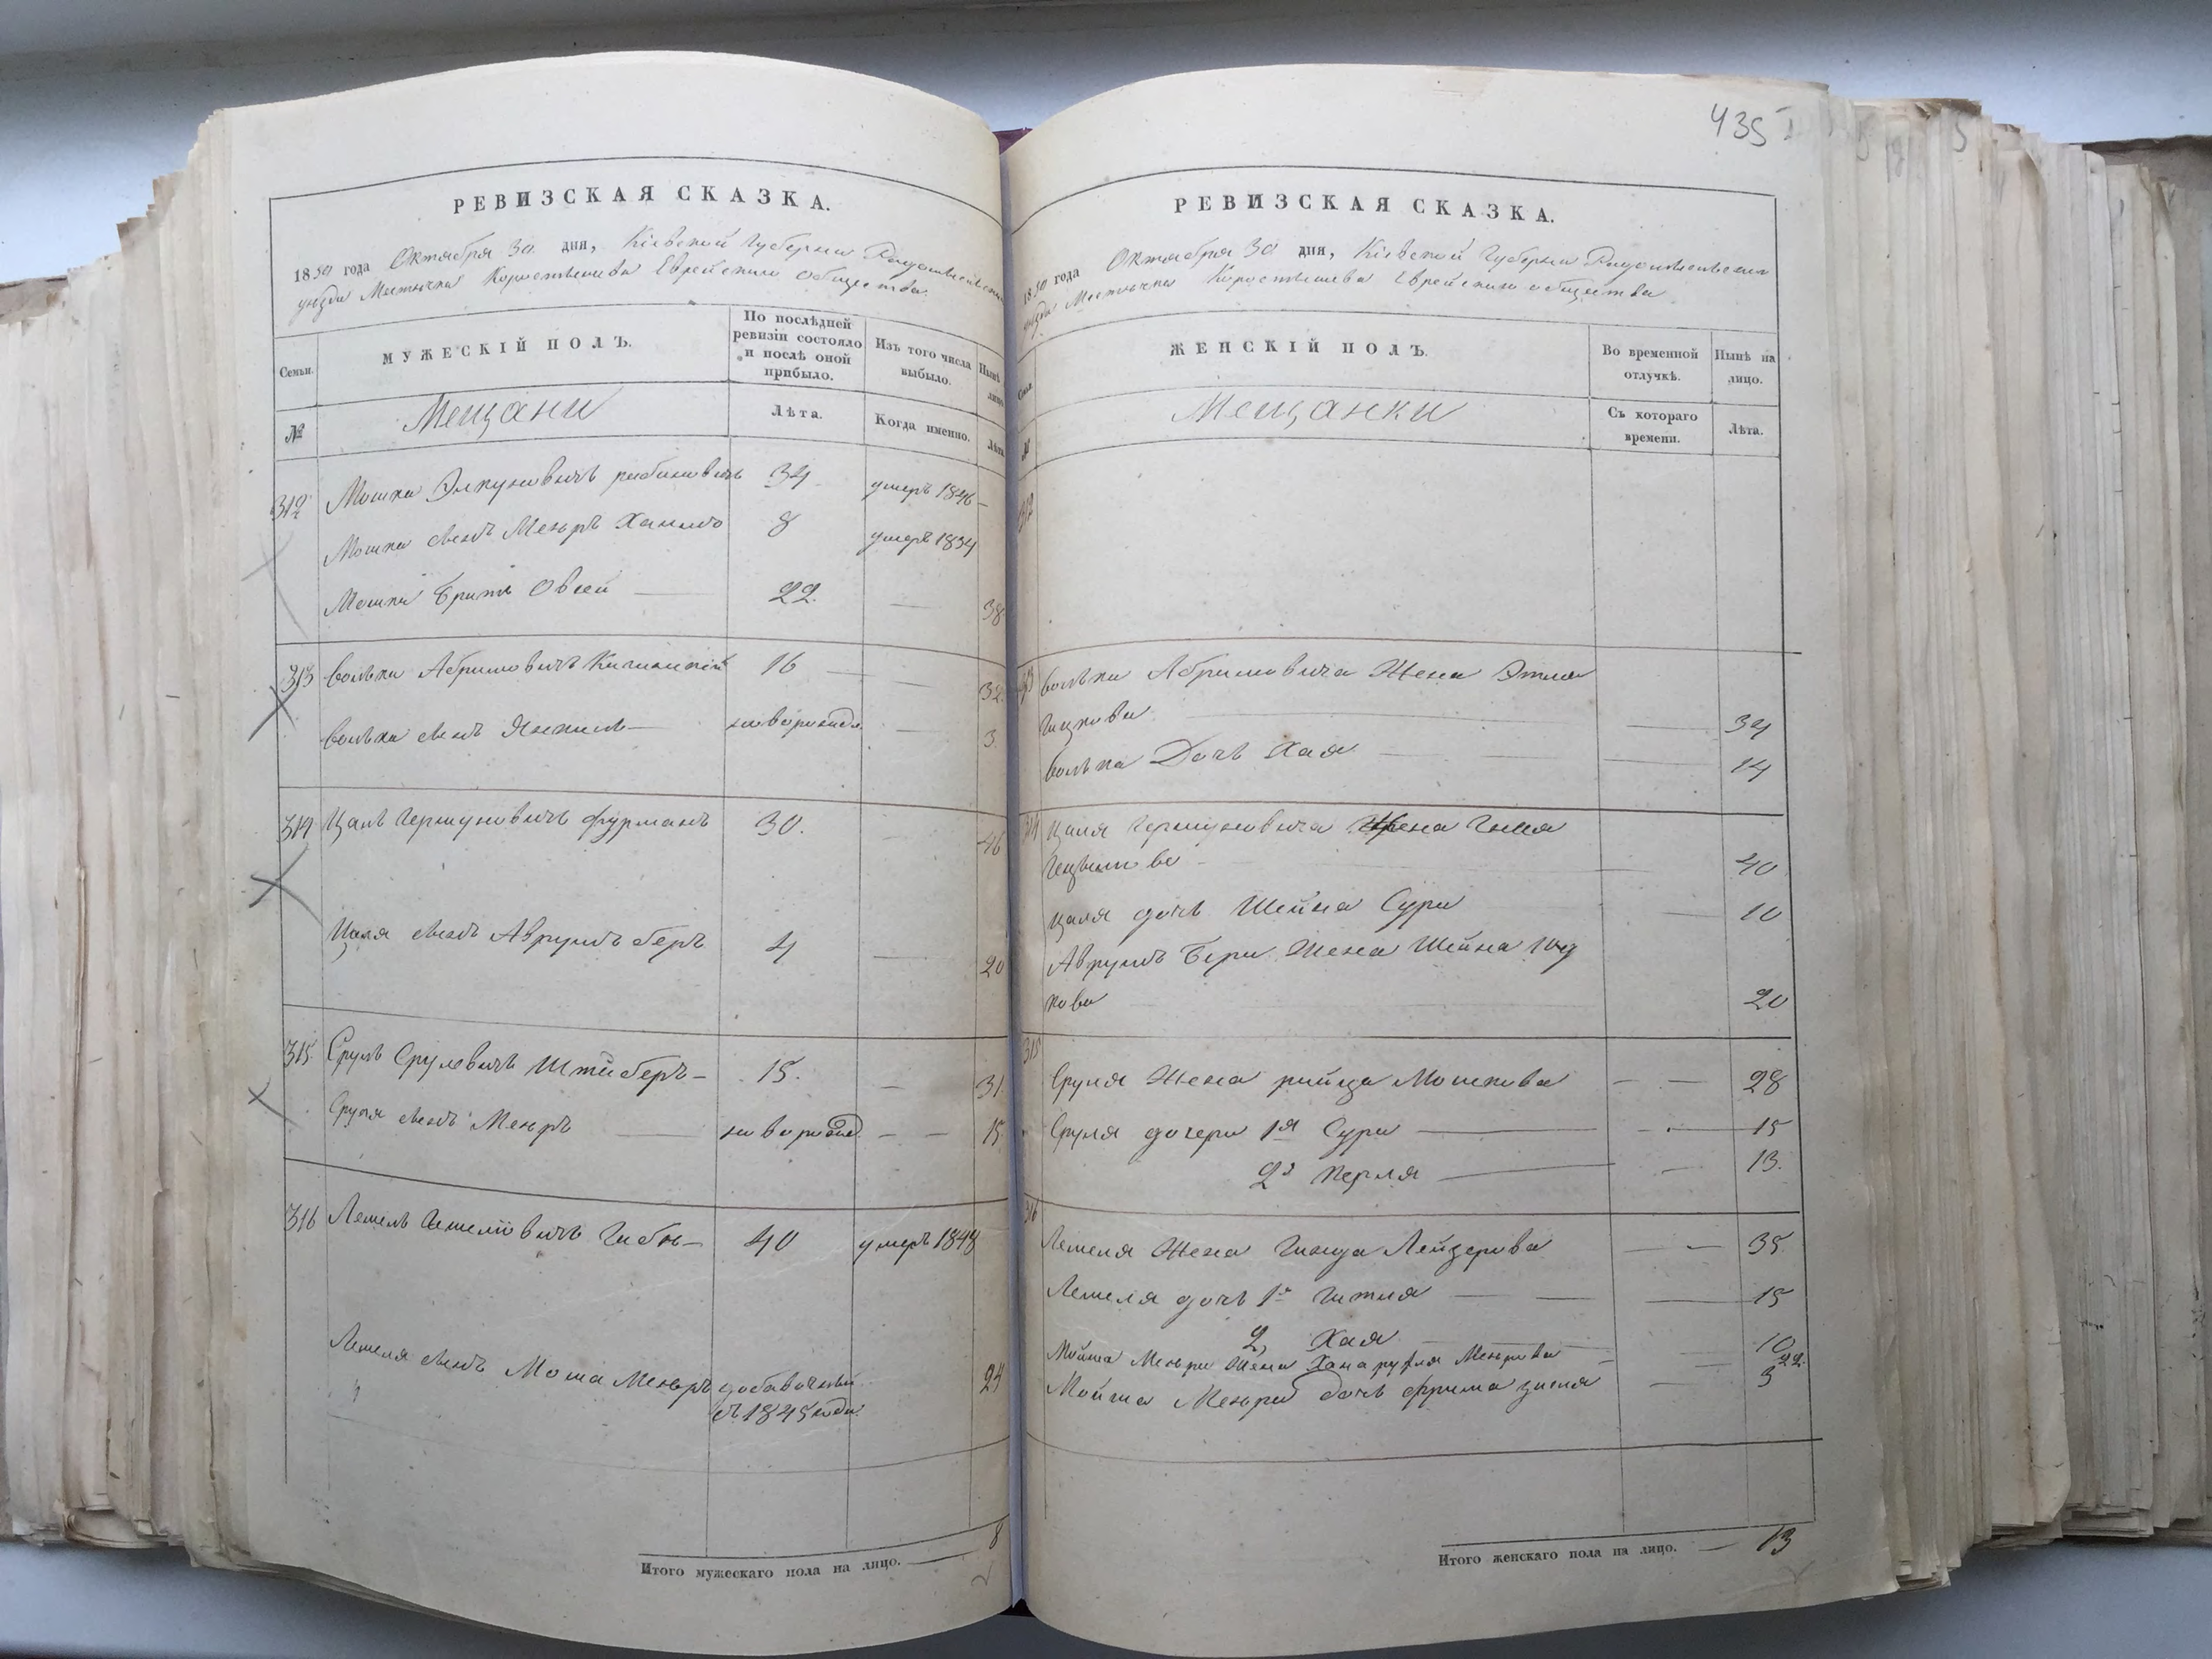 435
РЕВИЗСКАЯ СКАЗКА.
1850 года Октября 30 дня, Кіевской Губерніи Радомысльскаго
уѣзда Мѣстечка Коростышева Еврейскаго общества.
Семьи.
МУЖЕСКІЙ ПОЛЪ.
По послѣдней ревизіи состояло и послѣ оной прибыло.
Изъ того числа выбыло.
Нынѣ на лицо.
№
Мещани
Лѣта.
Когда именно.
Лѣта
312 Мошка Элкуновичъ рабиновичъ 34 умеръ 1846 —
Мошки сынъ Меюръ Хаимъ 8 умеръ 1834
Мошки братъ Овсей — 22. — 38
313 Волька Абрамовичъ 16 — — 32.
Волька сынъ Янкель — новорожд. — 3.
314 Цаль Гершуновичъ фурманъ 30. — 46
Цаля сынъ Аврумъ беръ 4 — 20
315. Сруль Срулевичъ Штейберъ — 15. — 31.
Сруля сынъ Меюръ — новорожд. — — 15.
316 Лемель 40 умеръ 1848
Лемеля сынъ Моша Меюръ добавочный 24
съ 1845 года.
Итого мужескаго пола на лицо. — 8
РЕВИЗСКАЯ СКАЗКА.
1850 года Октября 30 дня, Кіевской Губерніи Радомысльскаго
уѣзда Мѣстечка Коростышева Еврейскаго общества.
Семьи.
ЖЕНСКІЙ ПОЛЪ.
Во временной отлучкѣ.
Нынѣ на лицо.
№
Мещанки
Съ котораго времени.
Лѣта.
312
313 Волька Абрамовича Жена Этля
Ицкова — — 34
Волька Дочь Хая — — 14
314 Цаля Гершуновича Жена
— 40
Цаля дочь Шейна Сура — 10
Аврумъ Бера Жена Шейна Юд
кова — 20
315
Сруля Жена ройза Мошкова — — 28
Сруля дочери 1я Сура — — 15
2я перля — — 13.
316
Лемеля Жена Лейзерова — — 35.
Лемеля дочь 1я Гитля — — — 15
2, Хая — 10
Мойша Меюра Жена Хана рухля Меюрова — — 22.
Мойша Меюра дочь фрима зисля — 3
Итого женскаго пола на лицо. — 13